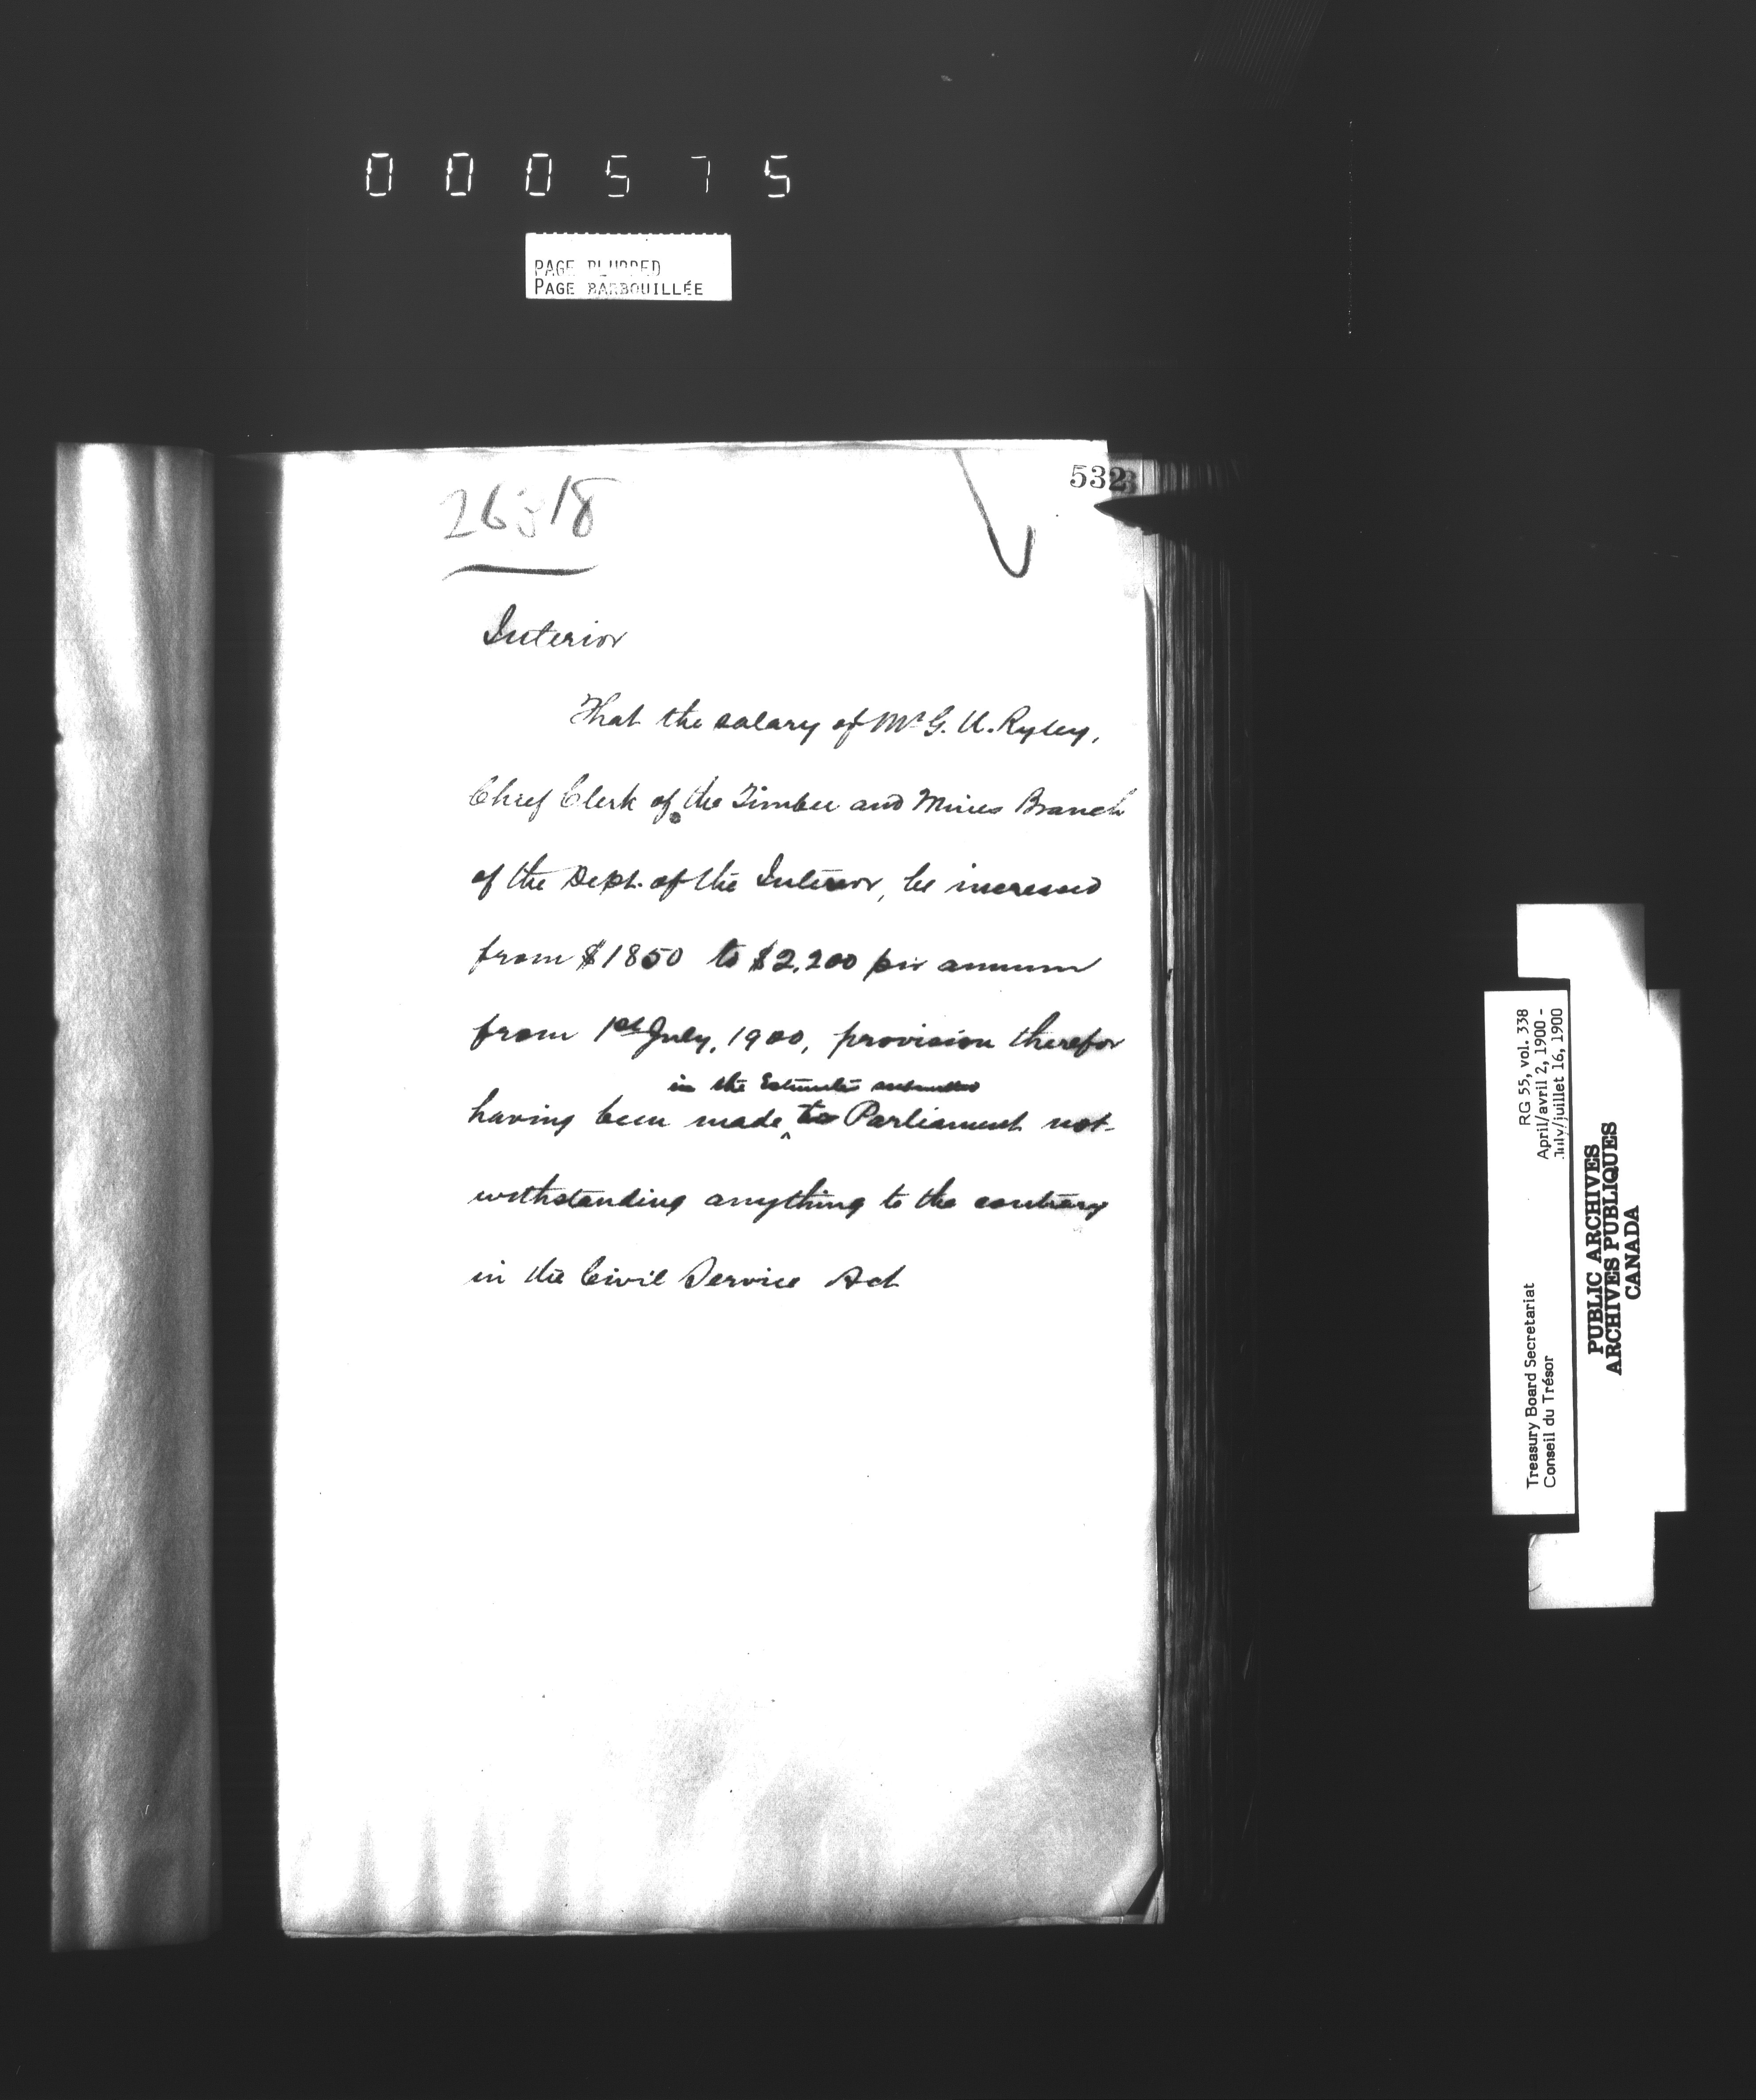 000575
PAGE BLURRED
PAGE BARBOUILLÉE
532
26518
Interior
That the salary of Mr G. U. Ryley,
Chief Clerk of the Timber and Mines Branch
of the Dept. of the Interior, be increased
from $1850 to $2,200 per annum
from 1st July, 1900, provision therefor
in the Estimates submitted
having been made ^ to Parliament not-
withstanding anything to the contrary
in the Civil Service Act
Treasury Board Secretariat RG 55, vol. 338
Conseil du Trésor April/avril 2, 1900 -
July/juillet 16, 1900
PUBLIC ARCHIVES
ARCHIVES PUBLIQUES
CANADA